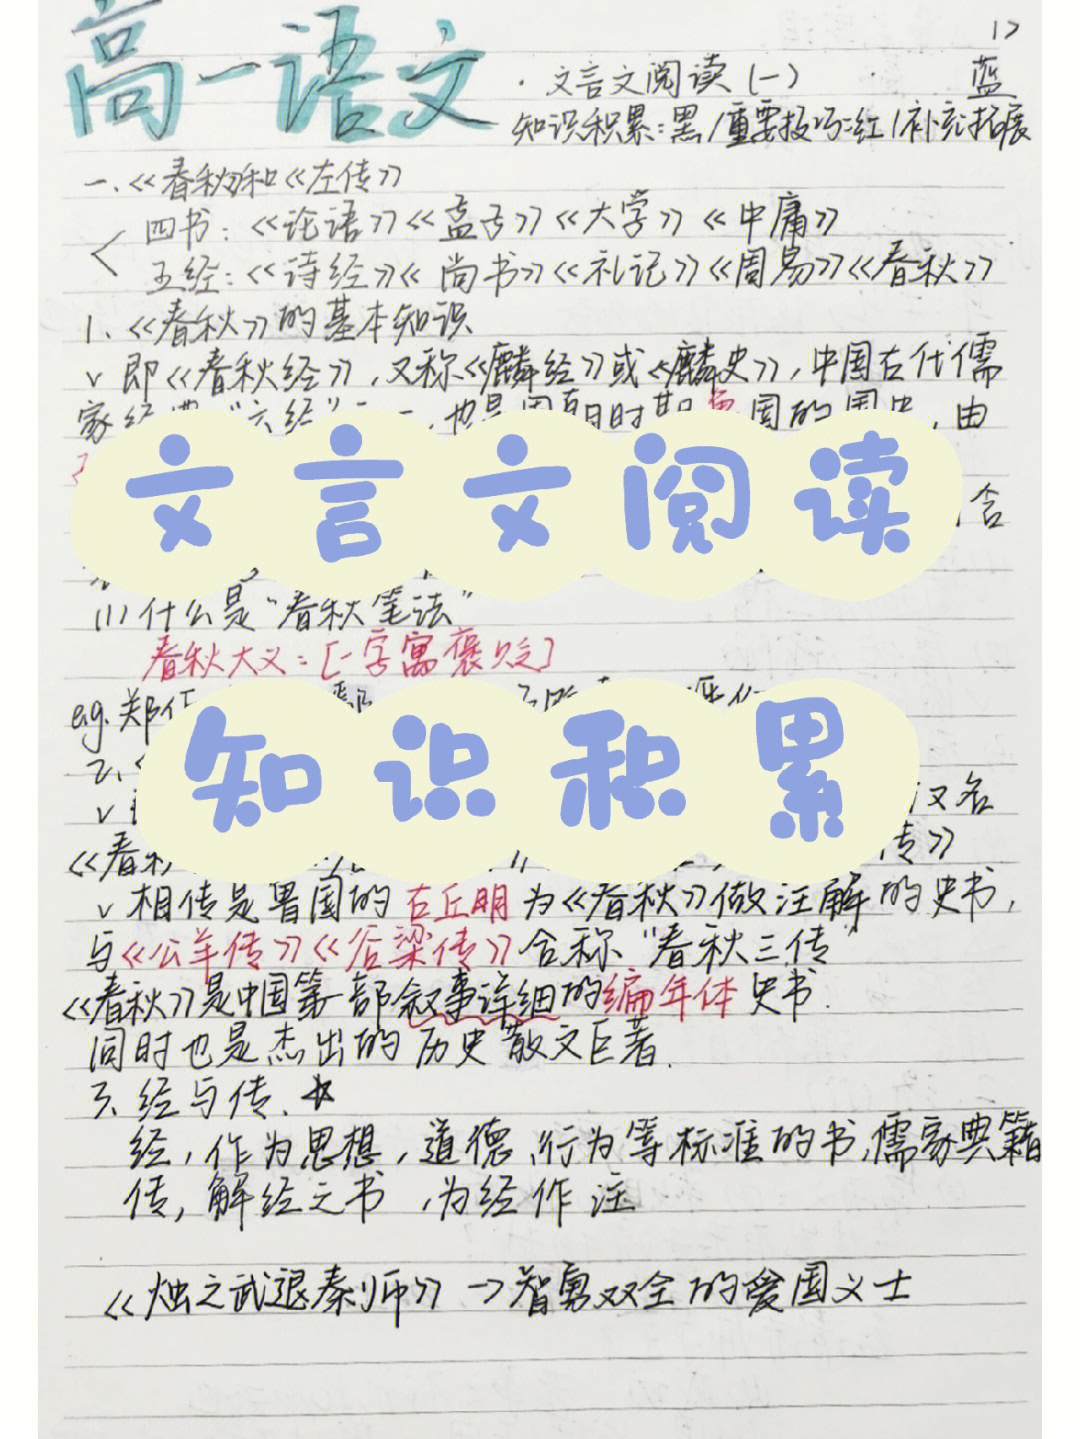 高一语文
12
·文言文阅读(一)
蓝
知识积累:黑/重要技巧:红/补充拓展
一.《春秋》和《左传》
四书:《论语》《孟子》《大学》《中庸》
五经:《诗经》《尚书》《礼记》《周易》《春秋》
1.《春秋》的基本知识
v 即《春秋经》,又称《麟经》或《麟史》,中国古代儒
家经典"六经"之一,也是周朝时期鲁国的国史,由
文言文阅读
含
(1)什么是"春秋笔法"
春秋大义:[一字寓褒贬]
e.g.郑伯
知识积累
2.《
v
又名
《春秋
传》
v 相传是鲁国的左丘明为《春秋》做注解的史书,
与《公羊传》《谷梁传》合称"春秋三传"
《春秋》是中国第一部叙事详细的编年体史书.
同时也是杰出的历史散文巨著.
3.经与传.
经,作为思想,道德,行为等标准的书,儒家典籍
传,解经之书,为经作注
《烛之武退秦师》→智勇双全的爱国义士